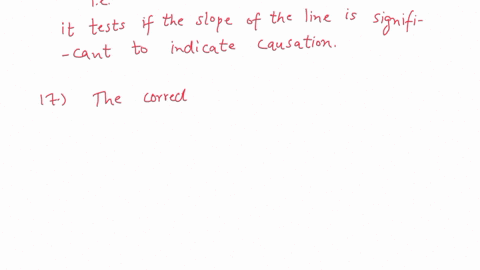 i.e.
it tests if the slope of the line is signifi-
-cant to indicate causation.
17) The corred